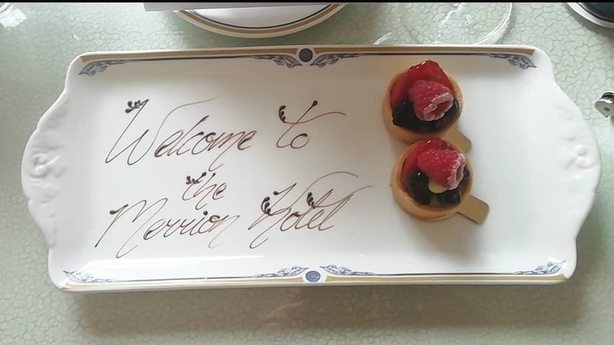 Welcome to
the
Merrion Hotel